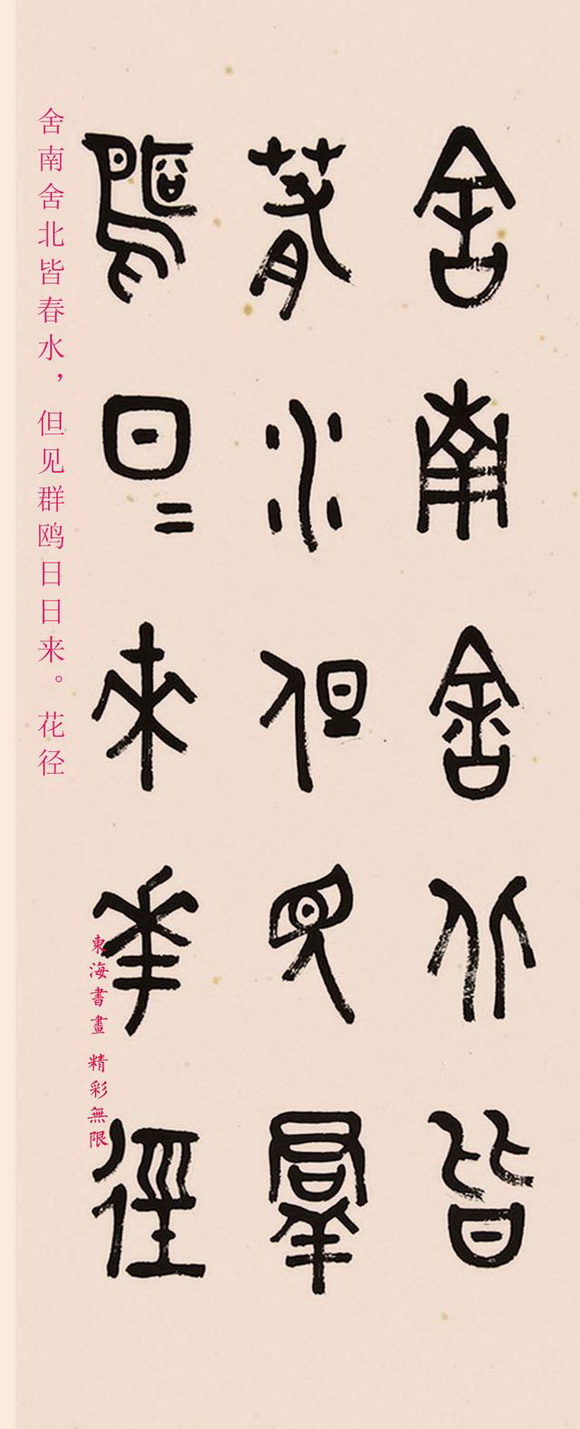 舍南舍北皆
春水但見羣
鷗日＝來華徑
舍南舍北皆春水，但见群鸥日日来。花径
東海書畫 精彩無限